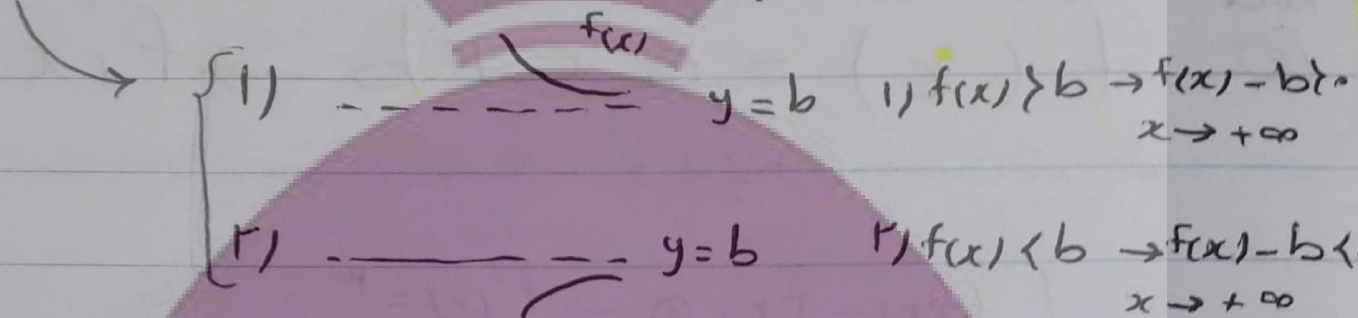 f(x)
1) y = b 1) f(x) > b → f(x) - b > ۰
x → +∞
۲) y = b ۲) f(x) < b → f(x) - b <
x → +∞